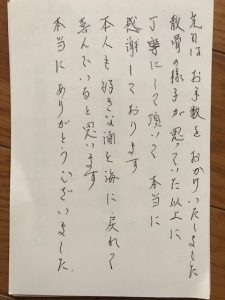 先日は お手数を おかけいたしました
散骨の様子が 思っていた以上に
丁寧にして頂いて 本当に
感謝しております
本人も 好きな酒と海に 戻れて
喜んでいると思います
本当に ありがとうございました。